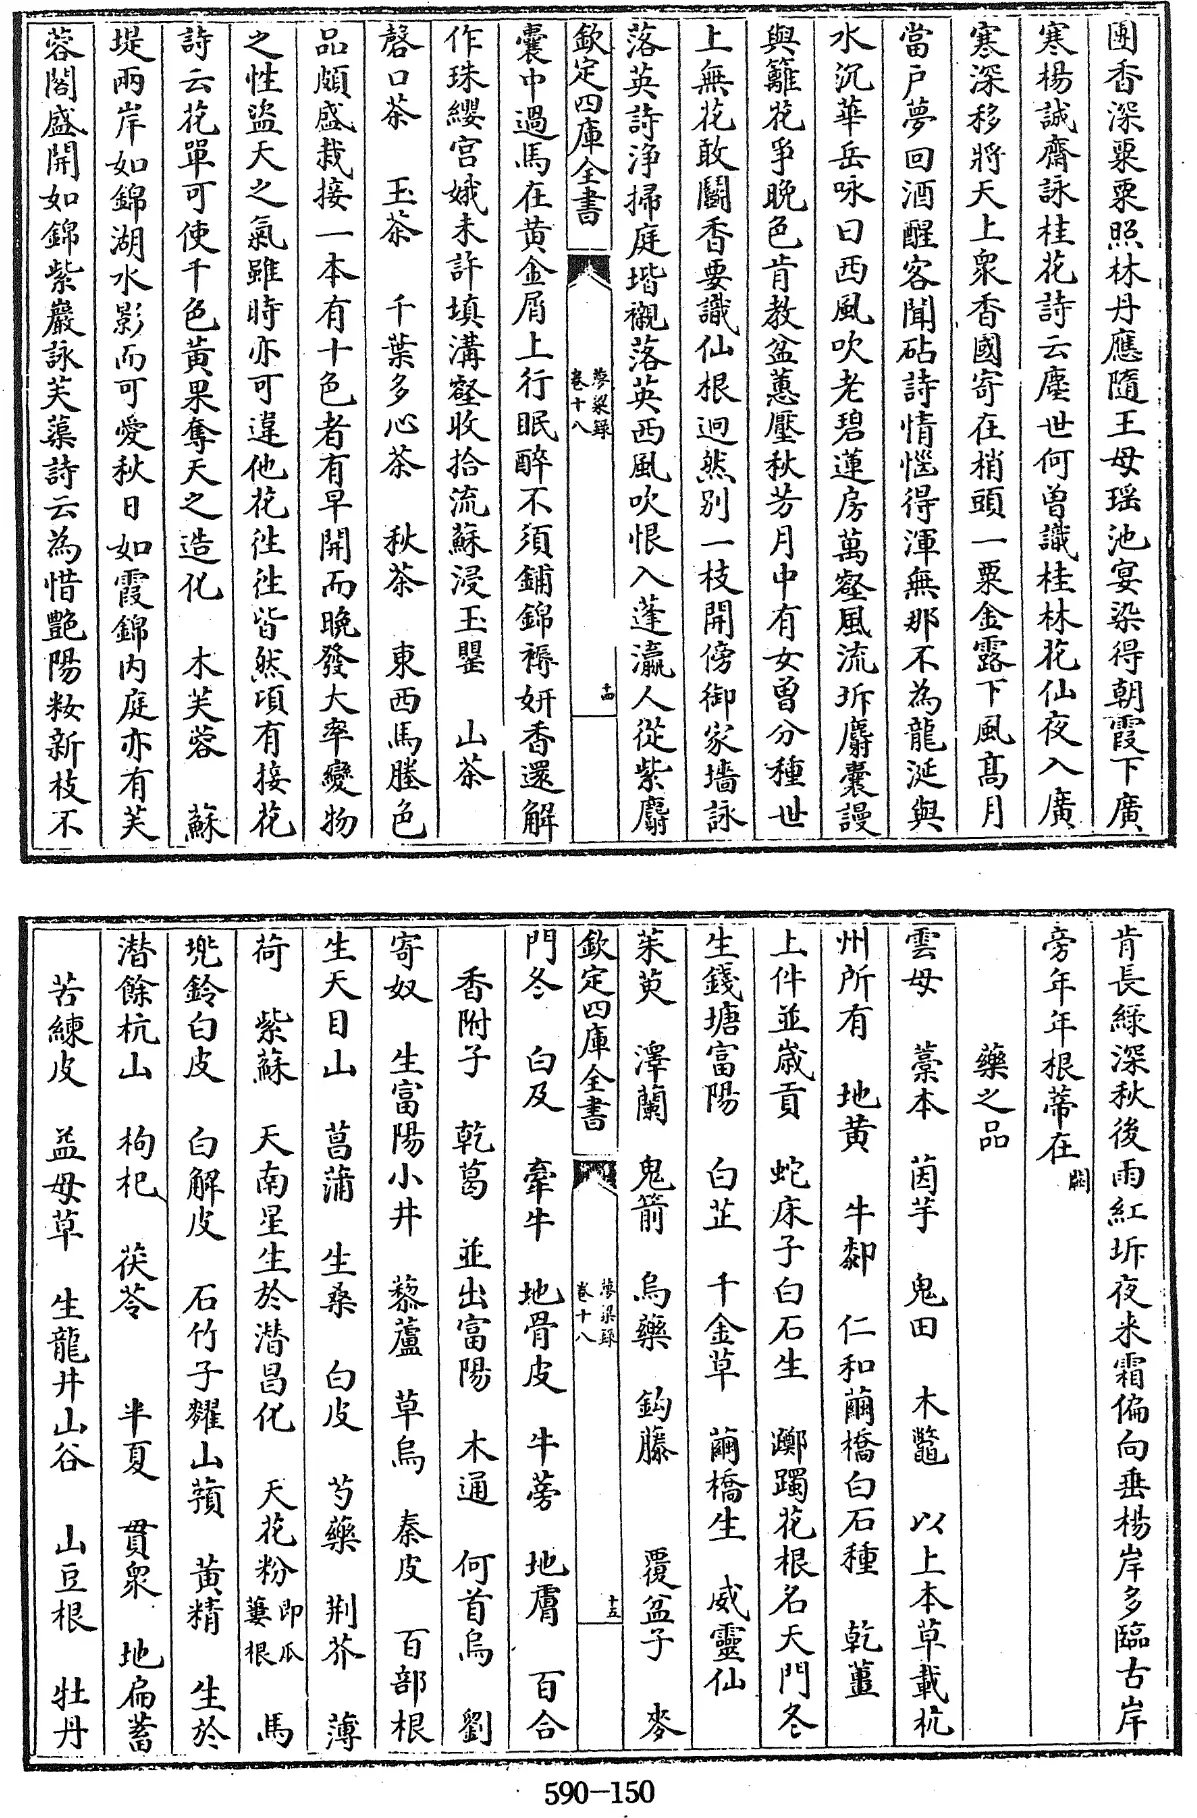 團香深粟粟照林丹應隨王母瑶池宴染得朝霞下廣
寒楊誠齋詠桂花詩云塵世何曽識桂林花仙夜入廣
寒深移將天上衆香國寄在梢頭一粟金露下風髙月
當戸夢回酒醒客聞砧詩情惱得渾無那不為龍涎與
水沉華岳咏曰西風吹老碧蓮房萬壑風流坼麝囊謾
與籬花爭晩色肯教盆蕙壓秋芳月中有女曽分種世
上無花敢鬬香要識仙根迥然别一枝開傍御家墻詠
落英詩浄掃庭堦襯落英西風吹恨入蓬瀛人從紫麝
欽定四庫全書
夢粱録
卷十八
十四
囊中過馬在黄金屑上行眠醉不須鋪錦褥妍香還解
作珠纓宫娥未許填溝壑收拾流蘇浸玉罌 山茶
磬口茶 玉茶 千葉多心茶 秋茶 東西馬塍色
品頗盛栽接一本有十色者有早開而晩發大率變物
之性盜天之氣雖時亦可違他花往往皆然頃有接花
詩云花單可使千色黄果奪天之造化 木芙蓉 蘇
堤兩岸如錦湖水影而可愛秋日如霞錦内庭亦有芙
蓉閣盛開如錦紫巖詠芙蕖詩云為惜艶陽粧新枝不
肯長緑深秋後雨紅坼夜来霜偏向垂楊岸多臨古岸
旁年年根蒂在闕
藥之品
雲母 藁本 茵芋 鬼田 木鼈 以上本草載杭
州所有 地黄 牛䣛 仁和繭橋白石種 乾薑
上件並歳貢 蛇床子白石生 躑躅花根名天門冬
生錢塘富陽 白芷 千金草 繭橋生 威靈仙
茱萸 澤蘭 鬼箭 烏藥 鈎藤 覆盆子 麥
欽定四庫全書
夢粱録
卷十八
十五
門冬 白及 牽牛 地骨皮 牛蒡 地膚 百合
香附子 乾葛 並出富陽 木通 何首烏 劉
寄奴 生富陽小井 藜蘆 草烏 秦皮 百部根
生天目山 菖蒲 生桑 白皮 芍藥 荆芥 薄
荷 紫蘇 天南星生於潛昌化 天花粉即瓜蔞根 馬
兠鈴白皮 白解皮 石竹子糶山蘋 黄精 生於
潛餘杭山 枸杞 茯苓 半夏 貫衆 地扁蓄
苦練皮 益母草 生龍井山谷 山豆根 牡丹
590-150